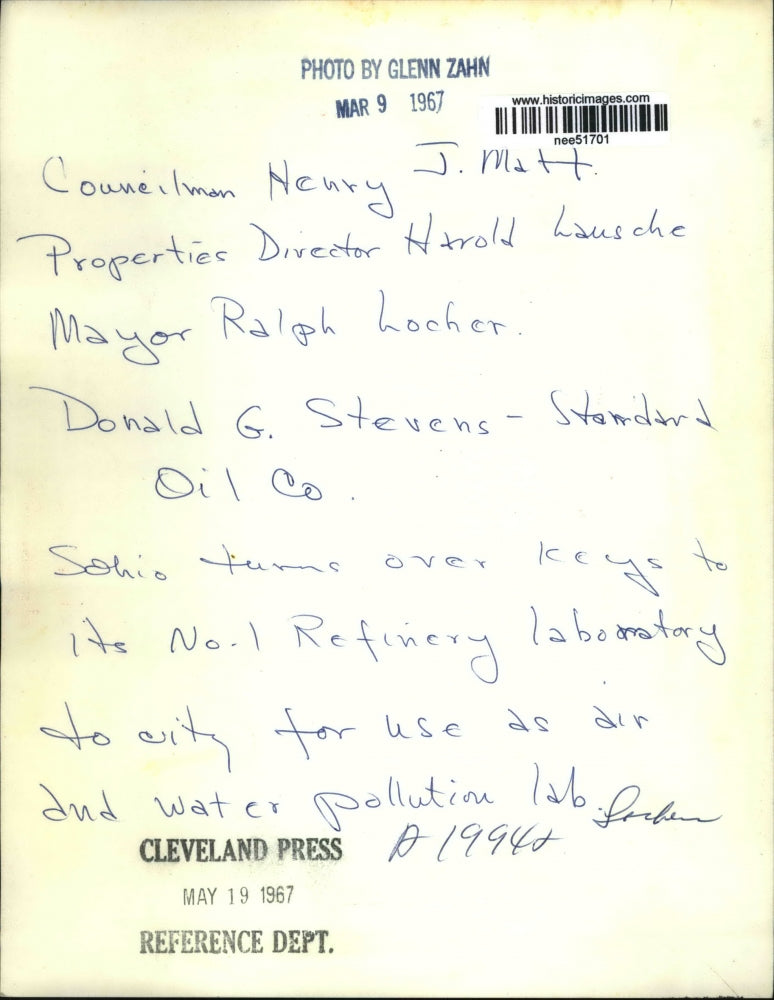 PHOTO BY GLENN ZAHN
MAR 9 1967
www.historicimages.com
nee51701
Councilman Henry J. Matt.
Properties Director Harold Lausche
Mayor Ralph Locher.
Donald G. Stevens - Standard
Oil Co.
Sohio turns over keys to
its No. 1 Refinery laboratory
to city for use as air
and water pollution lab.
Locher
CLEVELAND PRESS
MAY 19 1967
REFERENCE DEPT.